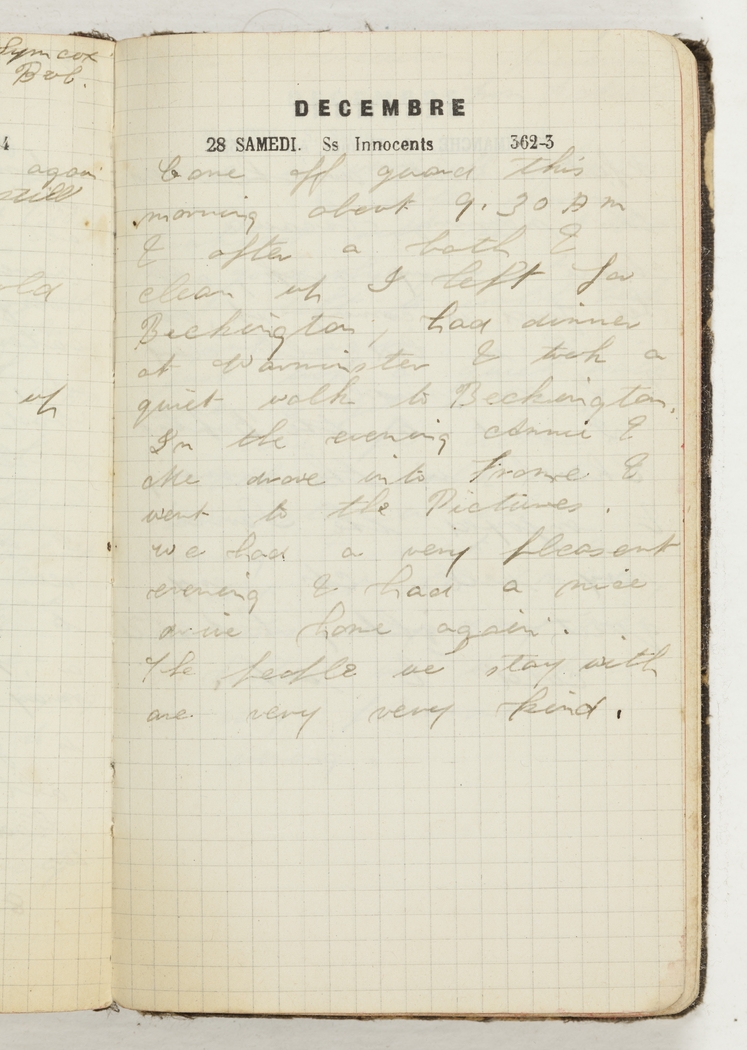 Symcox
Bob.
4
again
still
old
up
DECEMBRE
28 SAMEDI. Ss Innocents 362-3
Came off guard this
morning about 9.30 A m
& after a bath &
clean up I left for
Beckington, had dinner
at Warminster & took a
quiet walk to Beckington.
In the evening Annie &
Me drove into Frome &
went to the Pictures.
We had a very pleasent
evening & had a nice
drive home again.
The people we stay with
are very very kind.